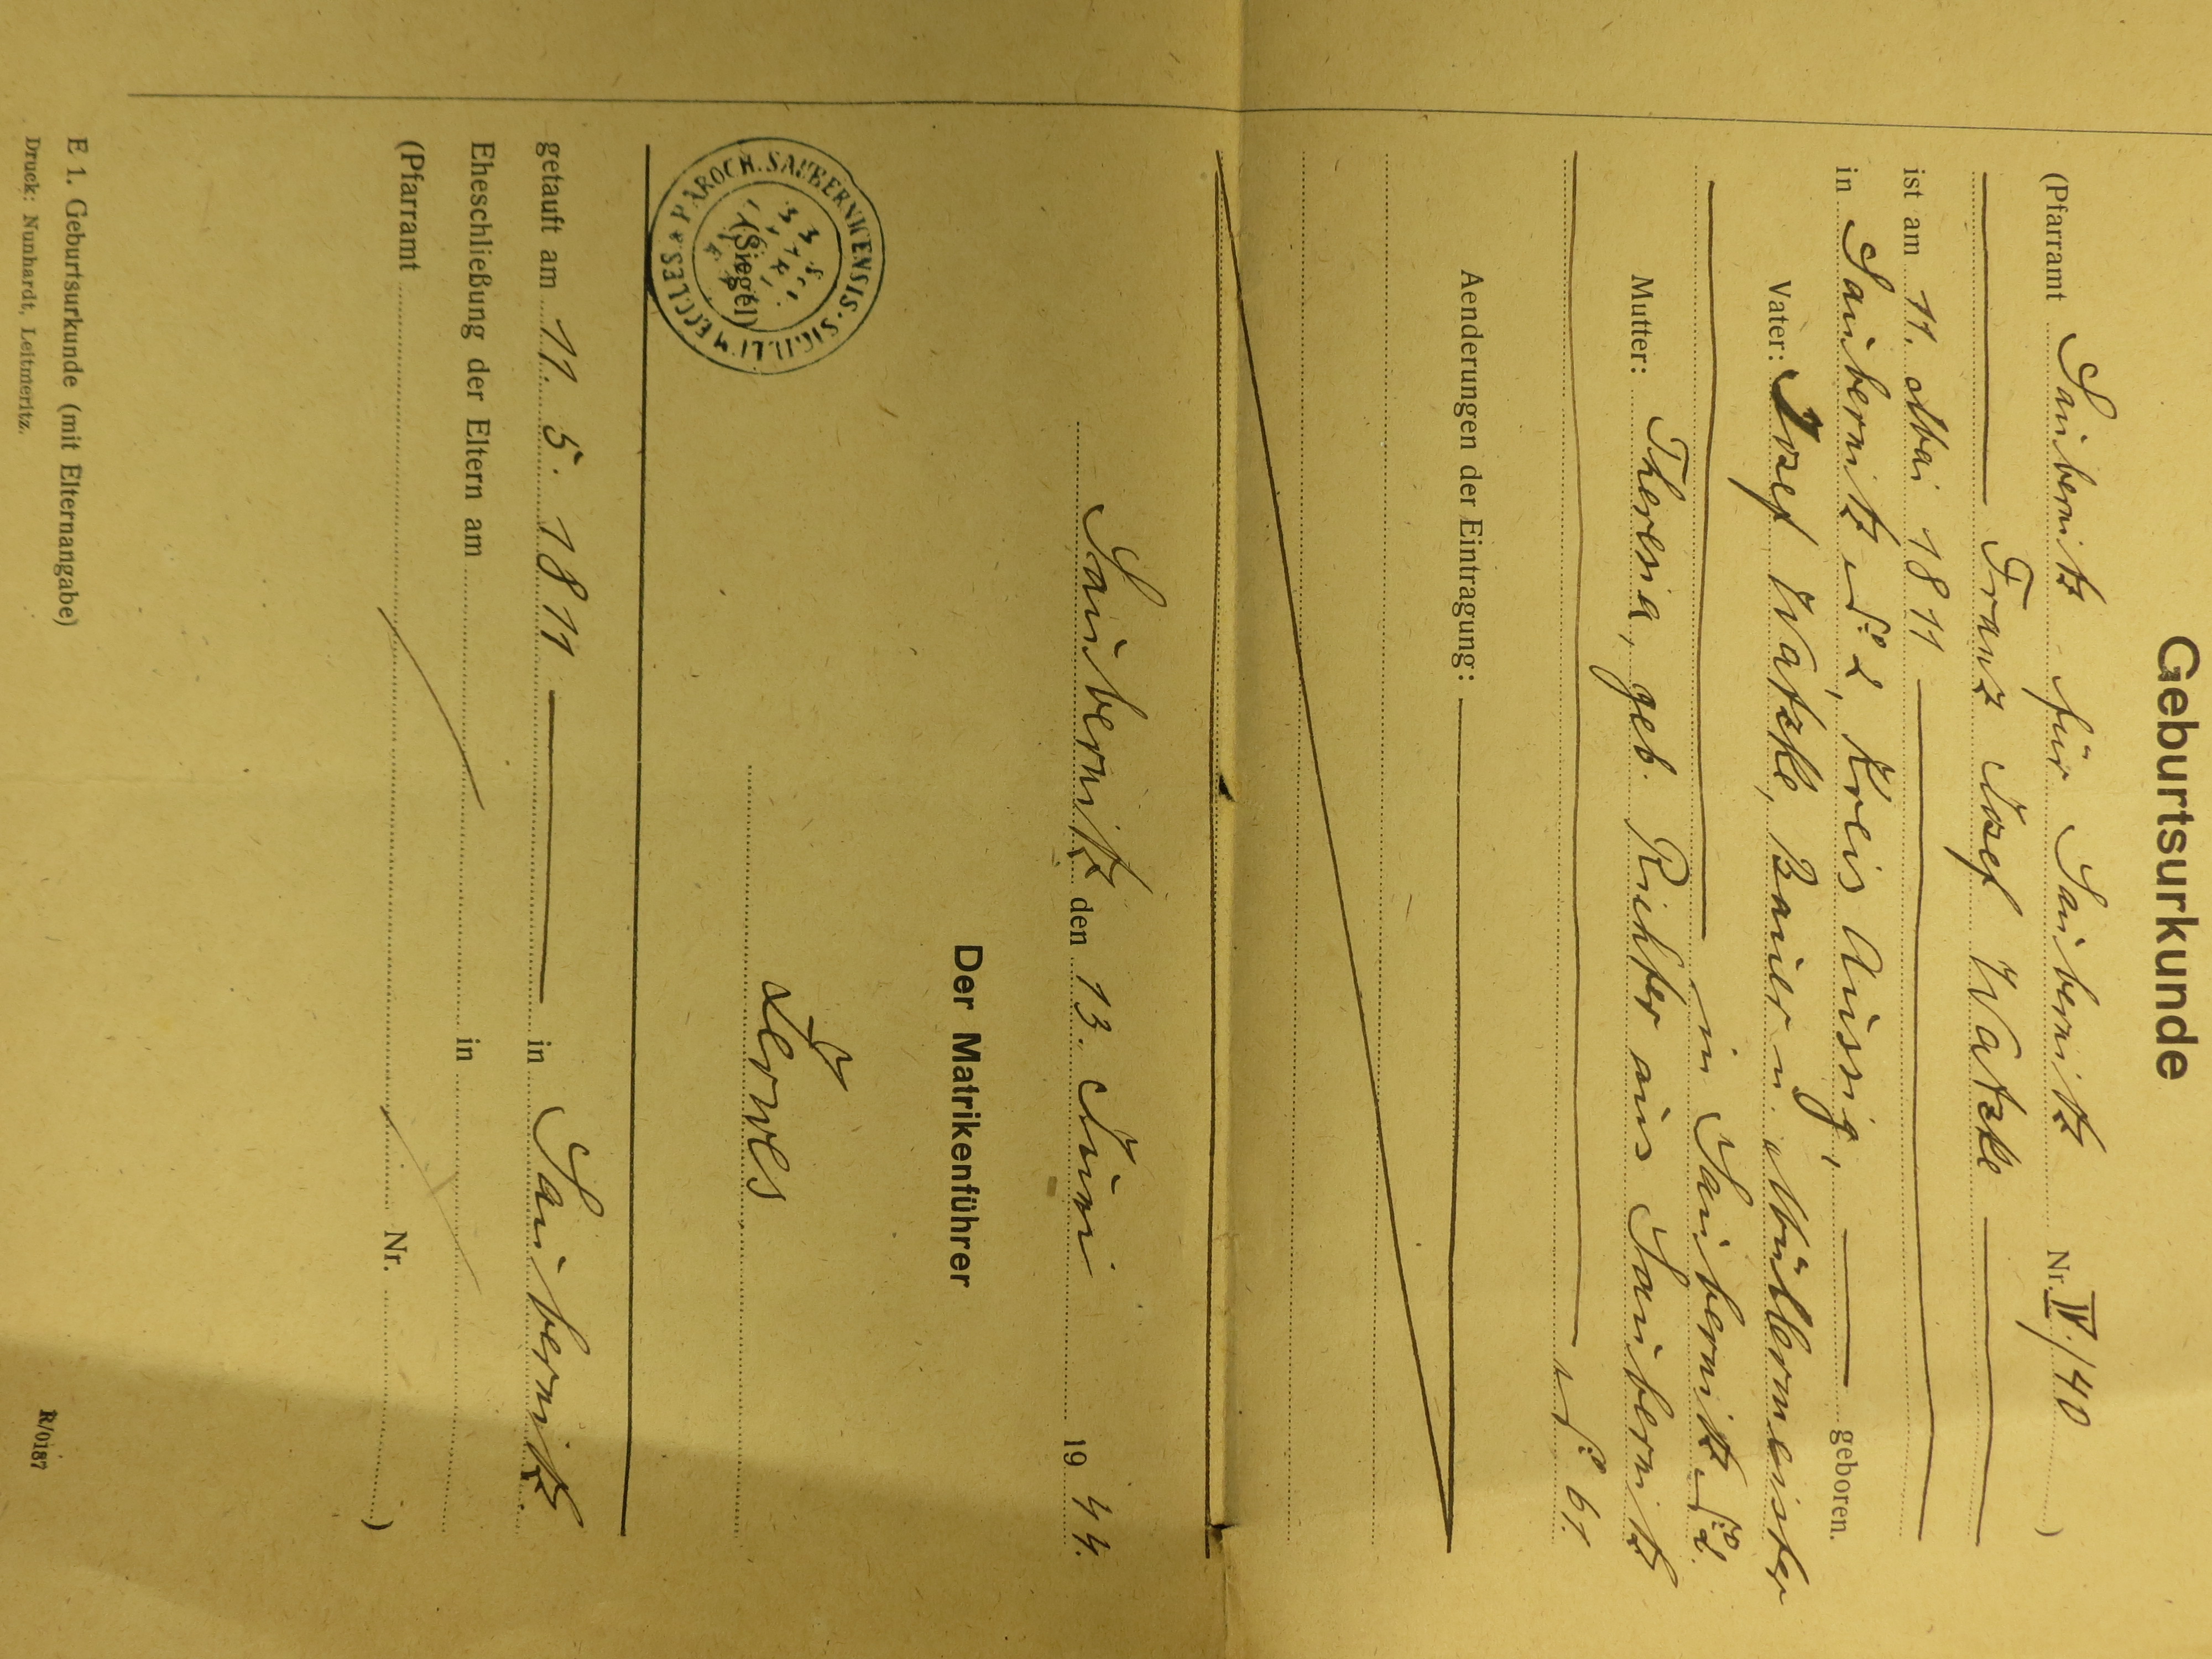 Geburtsurkunde
(Pfarramt Saubernitz für Saubernitz Nr. IV./40 )
Franz Josef Watzke
ist am 11. Mai 1811
in Saubernitz No 2, Kreis Aussig, geboren.
Vater: Josef Watzke, Bauer u. Müllermeister
in Saubernitz No 2.
Mutter: Theresia, geb. Richter aus Saubernitz
No 61.
Aenderungen der Eintragung:
Saubernitz den 13. Juni 1944.
Der Matrikenführer
SIGILLUM ECCLES & PAROCH. SAUBERNICENSIS
(Siegel)
Zerwes
getauft am 11. 5. 1811 in Saubernitz.
Eheschließung der Eltern am in
(Pfarramt Nr. )
E 1. Geburtsurkunde (mit Elternangabe)
Druck: Nunhardt, Leitmeritz.
R/0187